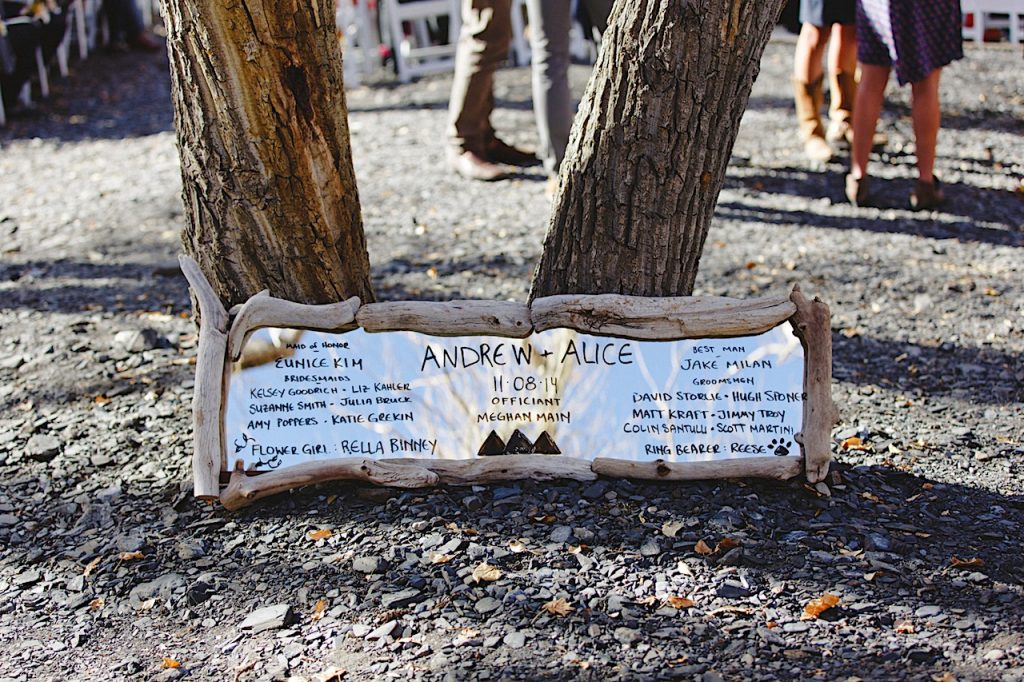 MAID OF HONOR
EUNICE KIM
BRIDESMAIDS
KELSEY GOODRICH · LIZ KAHLER
SUZANNE SMITH · JULIA BRUCK
AMY POPPERS · KATIE GREKIN
FLOWER GIRL: RELLA BINNEY
ANDREW + ALICE
11·08·14
OFFICIANT
MEGHAN MAIN
BEST MAN
JAKE MILAN
GROOMSMEN
DAVID STORLIE · HUGH SPONER
MATT KRAFT · JIMMY TROY
COLIN SANTULLI · SCOTT MARTINI
RING BEARER: REESE